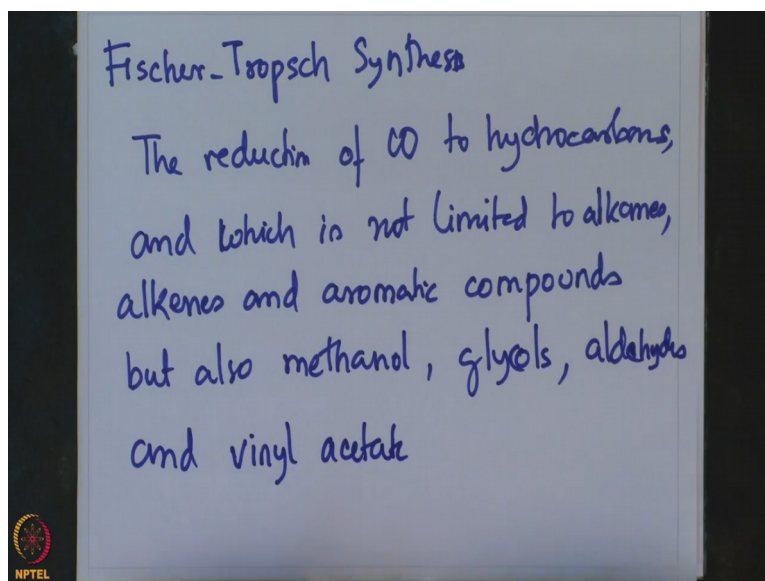 Fischer-Tropsch Synthesis
The reduction of CO to hydrocarbons,
and which is not limited to alkanes,
alkenes and aromatic compounds
but also methanol, glycols, aldehydes
and vinyl acetate
NPTEL